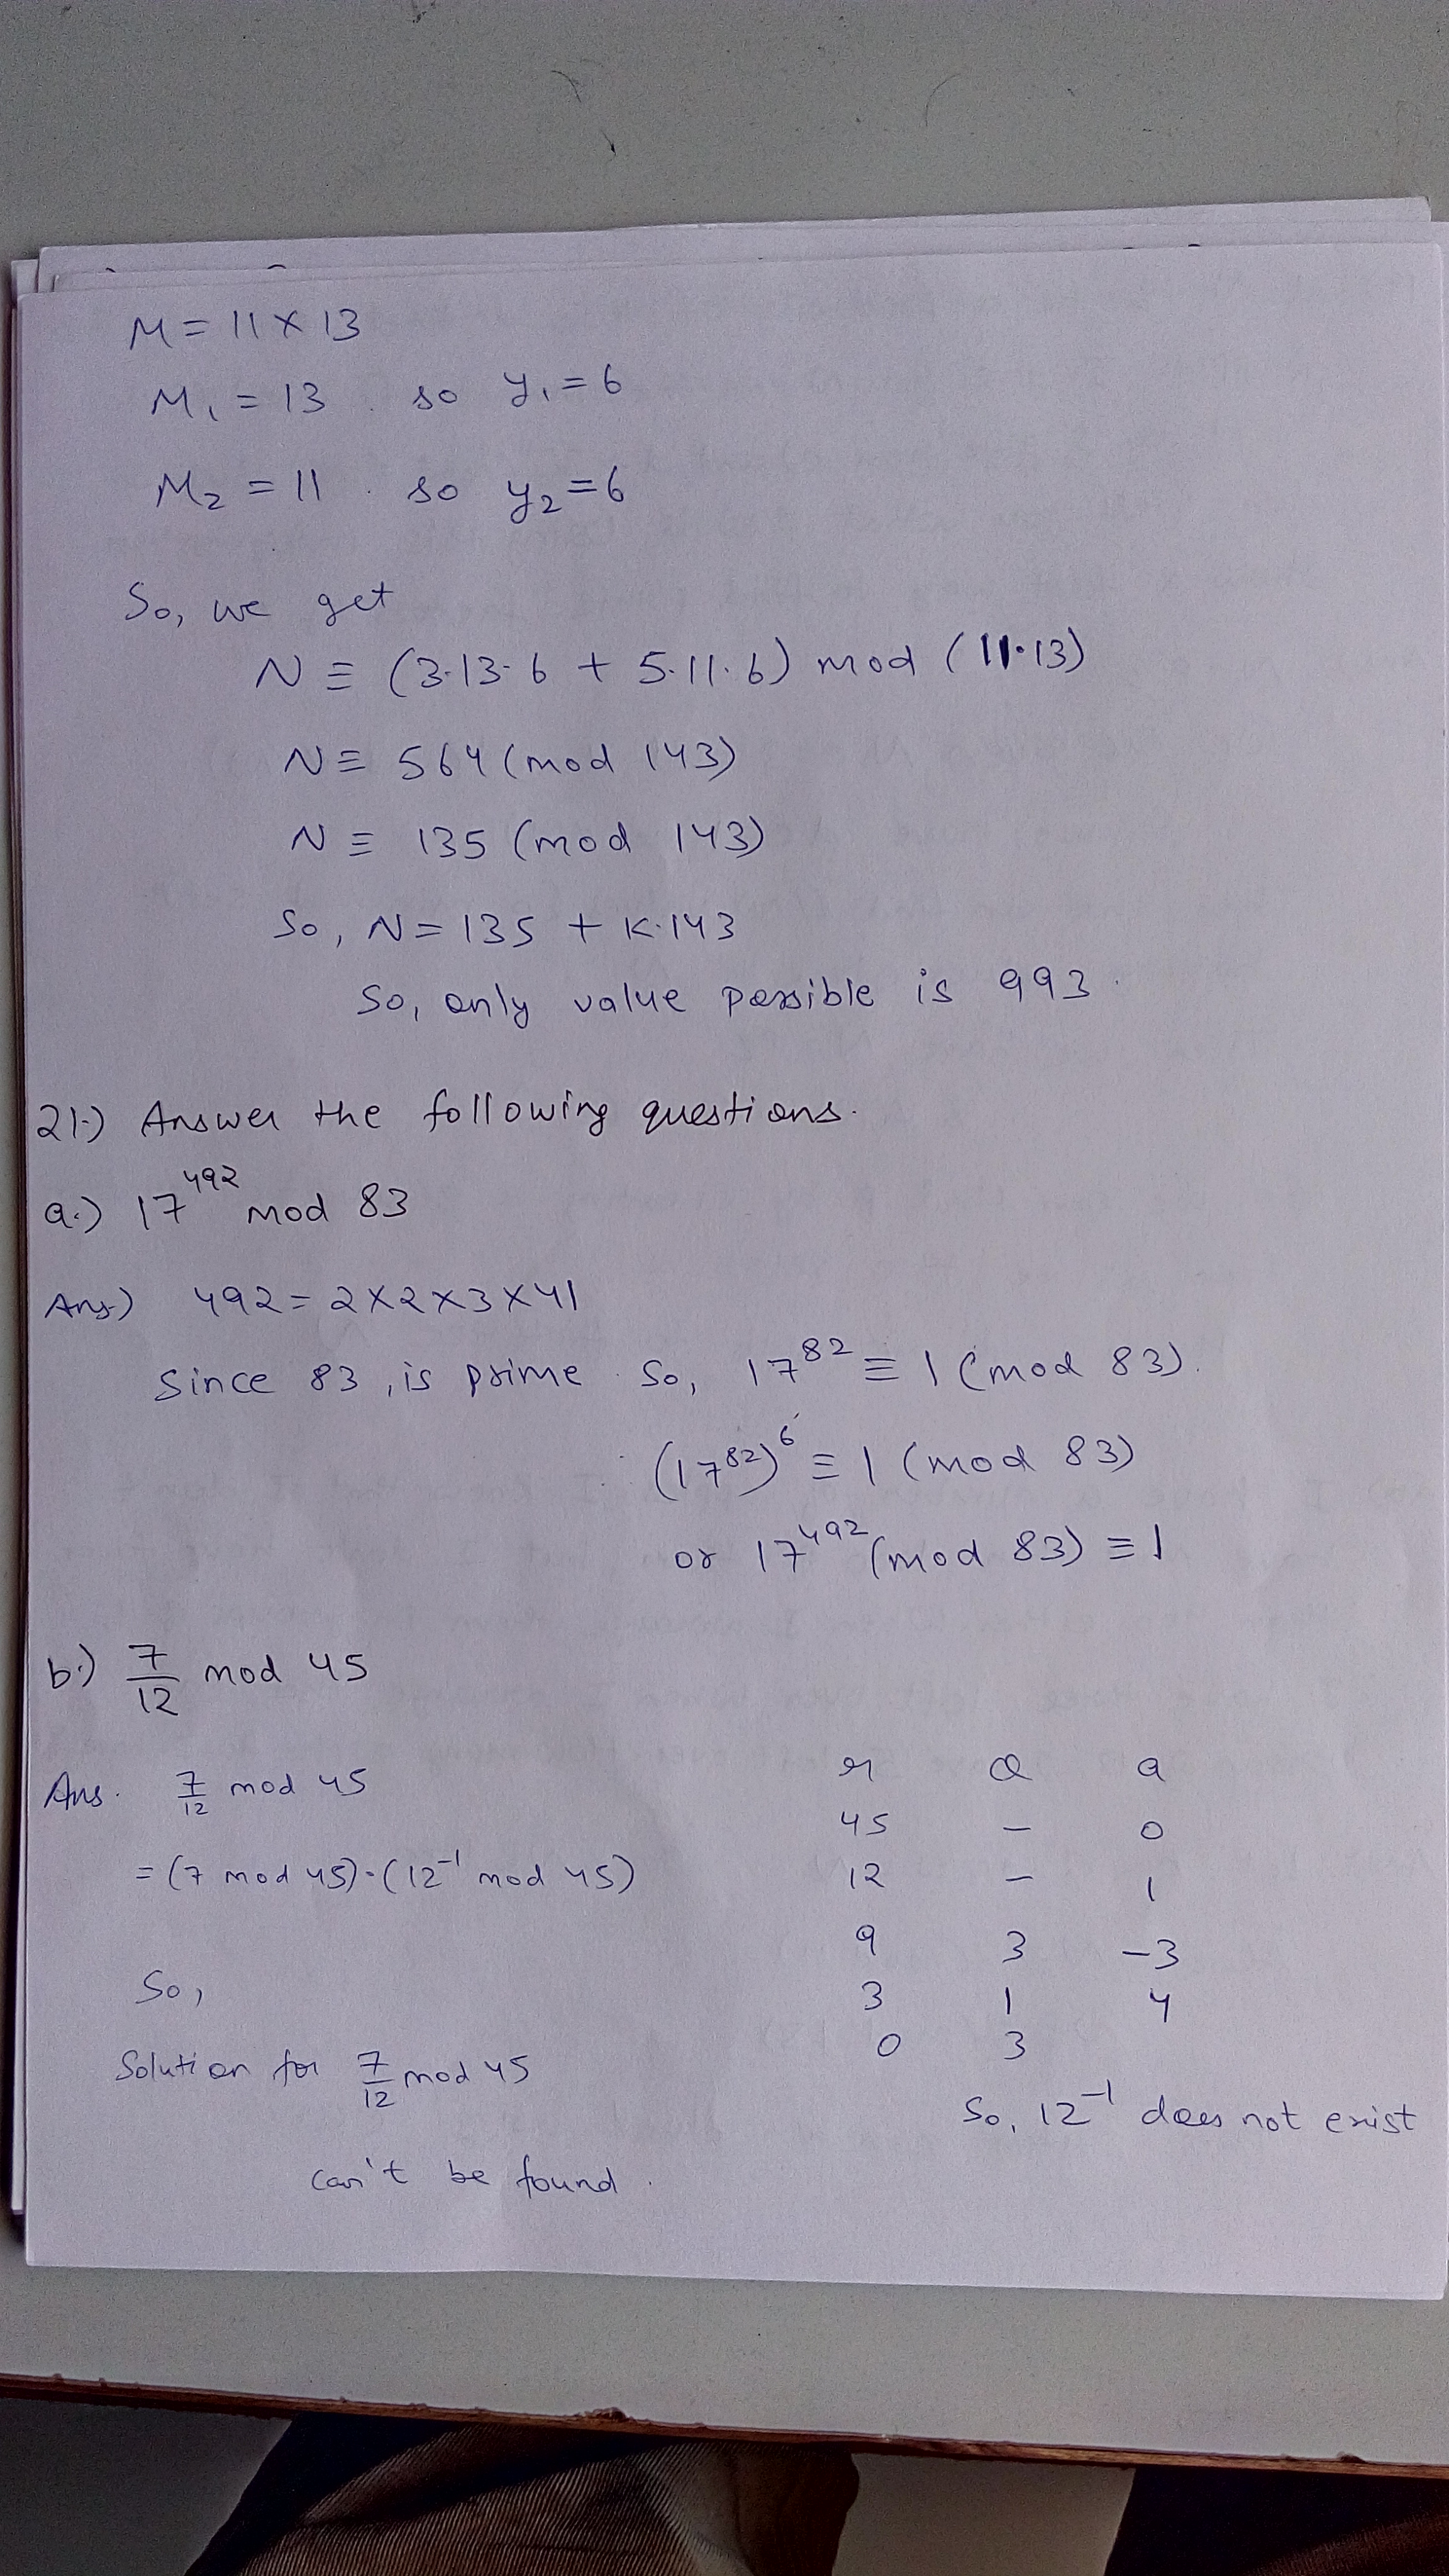 M = 11 × 13
M₁ = 13 . so y₁ = 6
M₂ = 11 . so y₂ = 6
So, we get
N ≡ (3·13·6 + 5·11·6) mod (11·13)
N ≡ 564 (mod 143)
N ≡ 135 (mod 143)
So, N = 135 + K·143
So, only value possible is 993.
21.) Answer the following questions.
a.) 17⁴⁹² mod 83
Ans.) 492 = 2×2×3×41
Since 83, is prime. So, 17⁸² ≡ 1 (mod 83).
(17⁸²)⁶ ≡ 1 (mod 83)
or 17⁴⁹² (mod 83) ≡ 1
b.) 7/12 mod 45
Ans. 7/12 mod 45
= (7 mod 45)·(12⁻¹ mod 45)
So,
Solution for 7/12 mod 45
can't be found.
r Q a
45 — 0
12 — 1
9 3 −3
3 1 4
0 3
So, 12⁻¹ does not exist